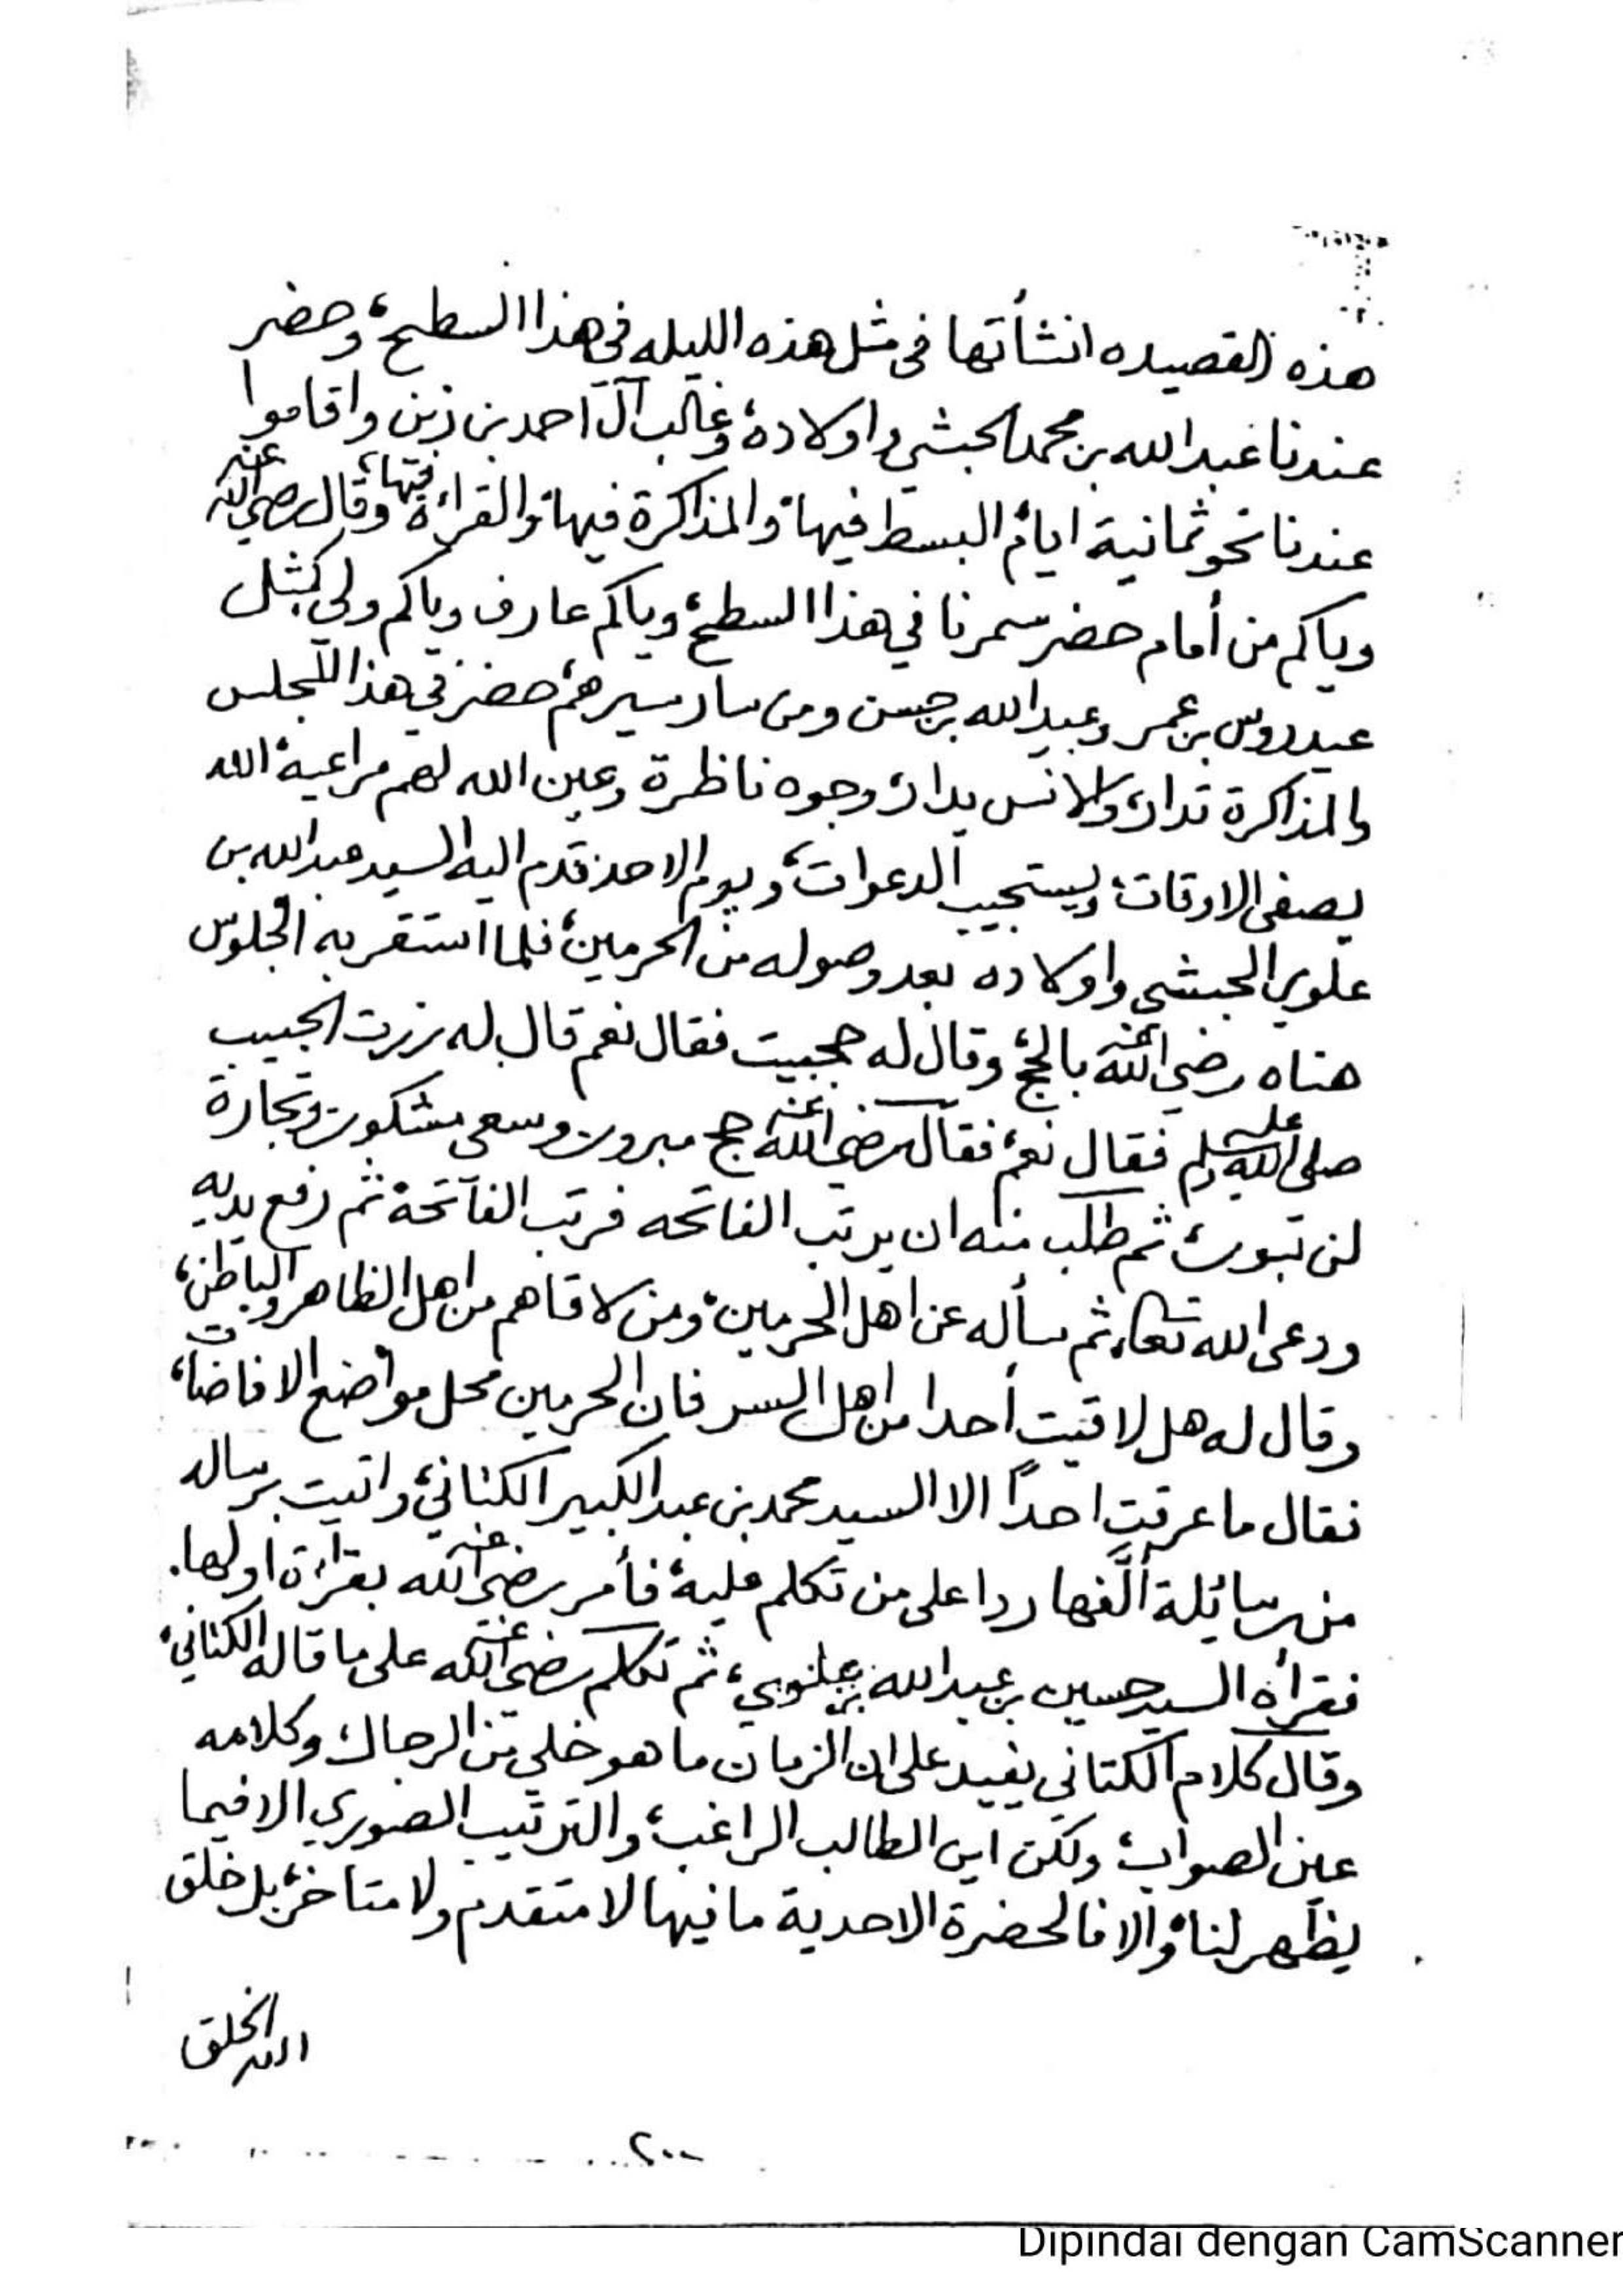 هذه القصيده انشأتها فى مثل هذه الليله فى هذا السطح، وحضر
عندنا عبدالله بن محمد الحبشي واولاده، وغالب آل احمد بن زين واقاموا
عندنا نحو ثمانية ايام، البسط فيها، والمذاكرة فيها، والقراءة فيها، وقال رضي الله عنه
وياكم من أمام حضر سمرنا في هذا السطح، وياكم عارف وياكم ولي كمثل
عيدروس بن عمر وعبدالله بن حسن ومن سار سيرهم، حضر في هذا المجلس
والمذاكرة تدار، والانس يدار، وجوه ناظرة وعين الله لهم مراعية، الله
يصفى الاوقات، ويستجيب الدعوات، ويوم الاحد قدم اليه السيد عبدالله بن
علوي الحبشي واولاده بعد وصوله من الحرمين، فلما استقر به الجلوس
هناه رضي الله عنه بالحج، وقال له حجيت فقال نعم قال له زرت الحبيب
صلى الله عليه وسلم فقال نعم، فقال رضي الله عنه حج مبرور وسعي مشكور وتجارة
لن تبور، ثم طلب منه ان يرتب الفاتحه فرتب الفاتحة، ثم رفع يديه
ودعى الله تعالى، ثم سأله عن اهل الحرمين، ومن لاقاهم من اهل الظاهر والباطن،
وقال له هل لاقيت أحدا من اهل السر فان الحرمين محل مواضع الافاضات،
فقال ما عرفت احداً الا السيد محمد بن عبدالكبير الكتاني، واتيت برساله
من رسائلة ألَّفها ردا على من تكلم عليه، فأمر رضي الله عنه بقراءة اولها.
فقرأه السيد حسين بن عبدالله بن علوي، ثم تكلم رضي الله عنه على ما قاله الكتاني،
وقال كلام الكتاني يفيد على ان الزمان ما هو خلي من الرجال، وكلامه
عين الصواب، ولكن اين الطالب الراغب، والترتيب الصوري الا فيما
يظهر لنا، والا فالحضرة الاحدية ما فيها لا متقدم ولا متاخر، بل خلق
الله الخلق
٢٠٠
Dipindai dengan CamScanner